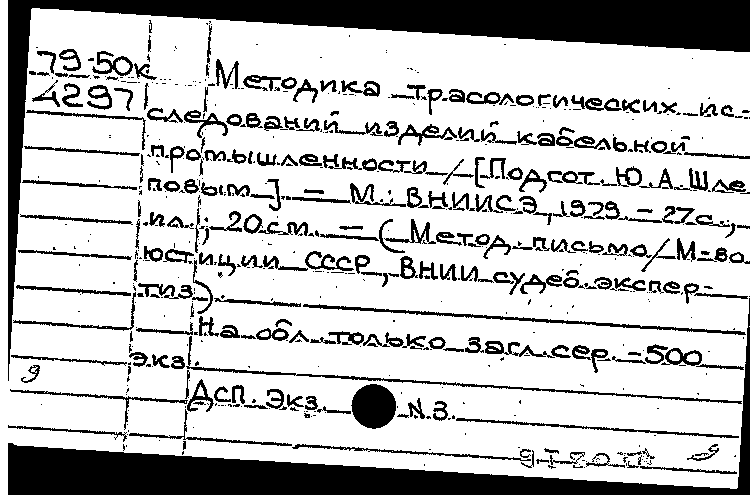 79-50к
4297
Методика трасологических ис-
следований изделий кабельной
промышленности / [Подгот. Ю.А.Шле
повым] - М.: ВНИИСЭ, 1979. - 27с.,
ил.; 20см. - (Метод. письмо/М-во
юстиции СССР, ВНИИ судеб. экспер-
тиз).
На обл. только загл. сер. - 500
экз.
9
ДСП. Экз. N.3.